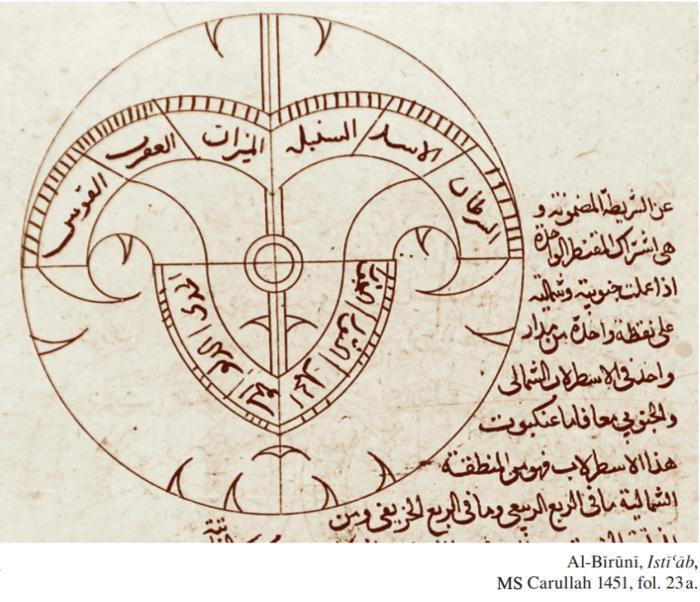 السرطان
الاسد
السنبله
الميزان
العقرب
القوس
الجدى
الدلو
الحوت
الحمل
الثور
عن الشريطة المضمونة و
هى اشتراك المقنطر الواحدة
اذا عملت جنوبية وشمالية
على نقطة واحدة من مدار
واحد فى الاسطرلاب الشمالى
والجنوبي معا فاما عنكبوت
هذا الاسطرلاب فهو من المنطقة
الشمالية ما فى الربع الربيعى وما فى الربع الخريفى ومن
Al-Bīrūnī, Istīʿāb,
MS Carullah 1451, fol. 23a.